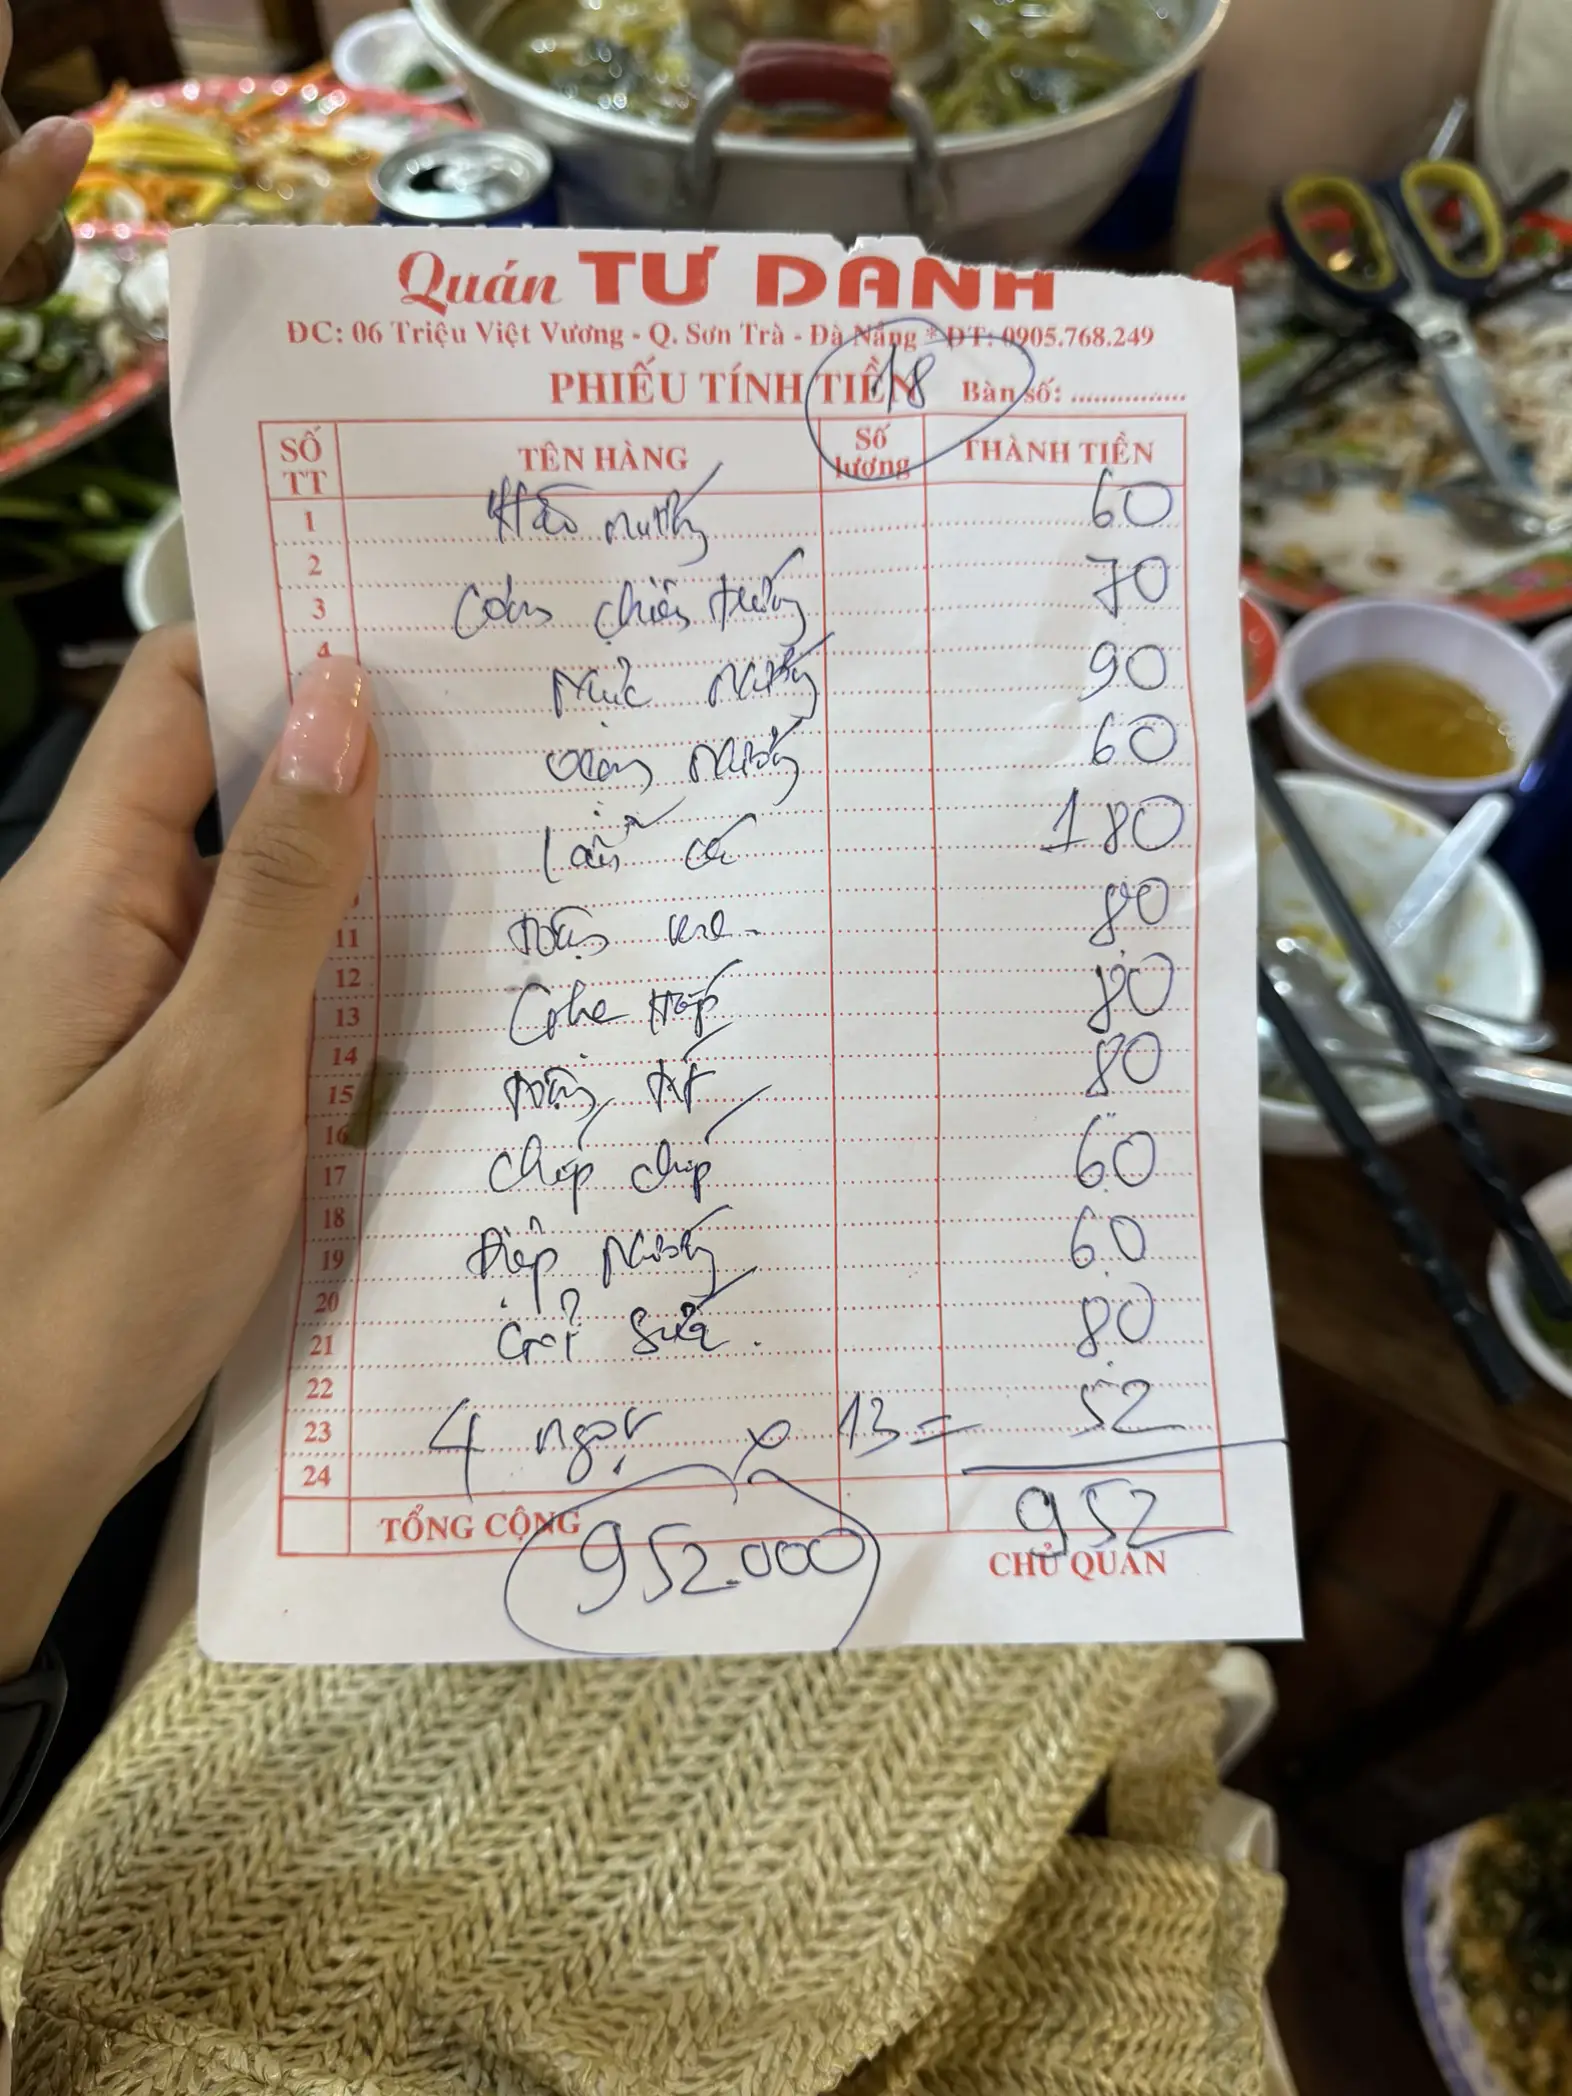 Quán TƯ DANH
ĐC: 06 Triệu Việt Vương - Q. Sơn Trà - Đà Nẵng * ĐT: 0905.768.249
PHIẾU TÍNH TIỀN 18 Bàn số: ...............
SỐ TT TÊN HÀNG Số lượng THÀNH TIỀN
1 Hàu nướng 60
2
3 Cơm chiên trứng 70
4
Mực nướng 90
nướng 60
Lẩu cá 180
11 80
12
13 Ghẹ hấp 80
14
15 80
16
17 Chíp chíp 60
18
19 Điệp nướng 60
20
21 Gỏi sứa. 80
22
23 4 ngọt x 13 = 52
24
TỔNG CỘNG 952
952.000
CHỦ QUÁN